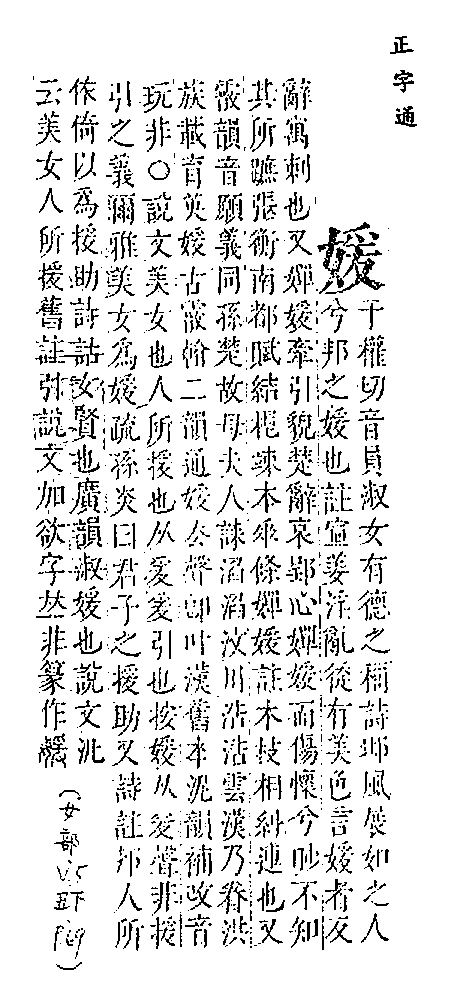 正字通
媛
于權切音員淑女有德之稱詩鄘風展如之人
兮邦之媛也註宣姜淫亂從有美色言媛者反
辭寓刺也又嬋媛牽引貌楚辭哀郢心嬋媛而傷懷兮眇不知
其所蹠張衡南都賦結根竦本垂條嬋媛註木枝相糾連也又
霰韻音願義同孫楚故母夫人誄滔滔汶川浩浩雲漢乃眷洪
族載育英媛古霰翰二韻通媛去聲卽叶漢舊本泥韻補改音
玩非○說文美女也人所援也从爰爰引也按媛从爰聲非援
引之義爾雅美女爲媛疏孫炎曰君子之援助又詩註邦人所
依倚以爲援助詩詁女賢也廣韻淑媛也說文泥
云美女人所援舊註引說文加欲字𠀤非篆作
(女部 V.5
丑下
P69)